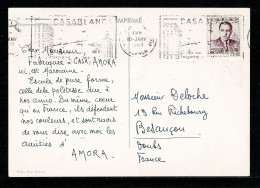 CASABLANCA
IMPRIMÉ
CASABLANC
Cher Monsieur,
Fabriquée à CASA, AMORA
ici est Marocaine.
Escale de pure forme,
celle de la politesse due à
nos amis. Du même cœur
qu'en France, ils défendent
nos couleurs, et sont ravis
de vous dire avec moi les
amitiés d'
AMORA.
Monsieur Deloche
13 Rue Richebourg
Besançon
Doubs
France